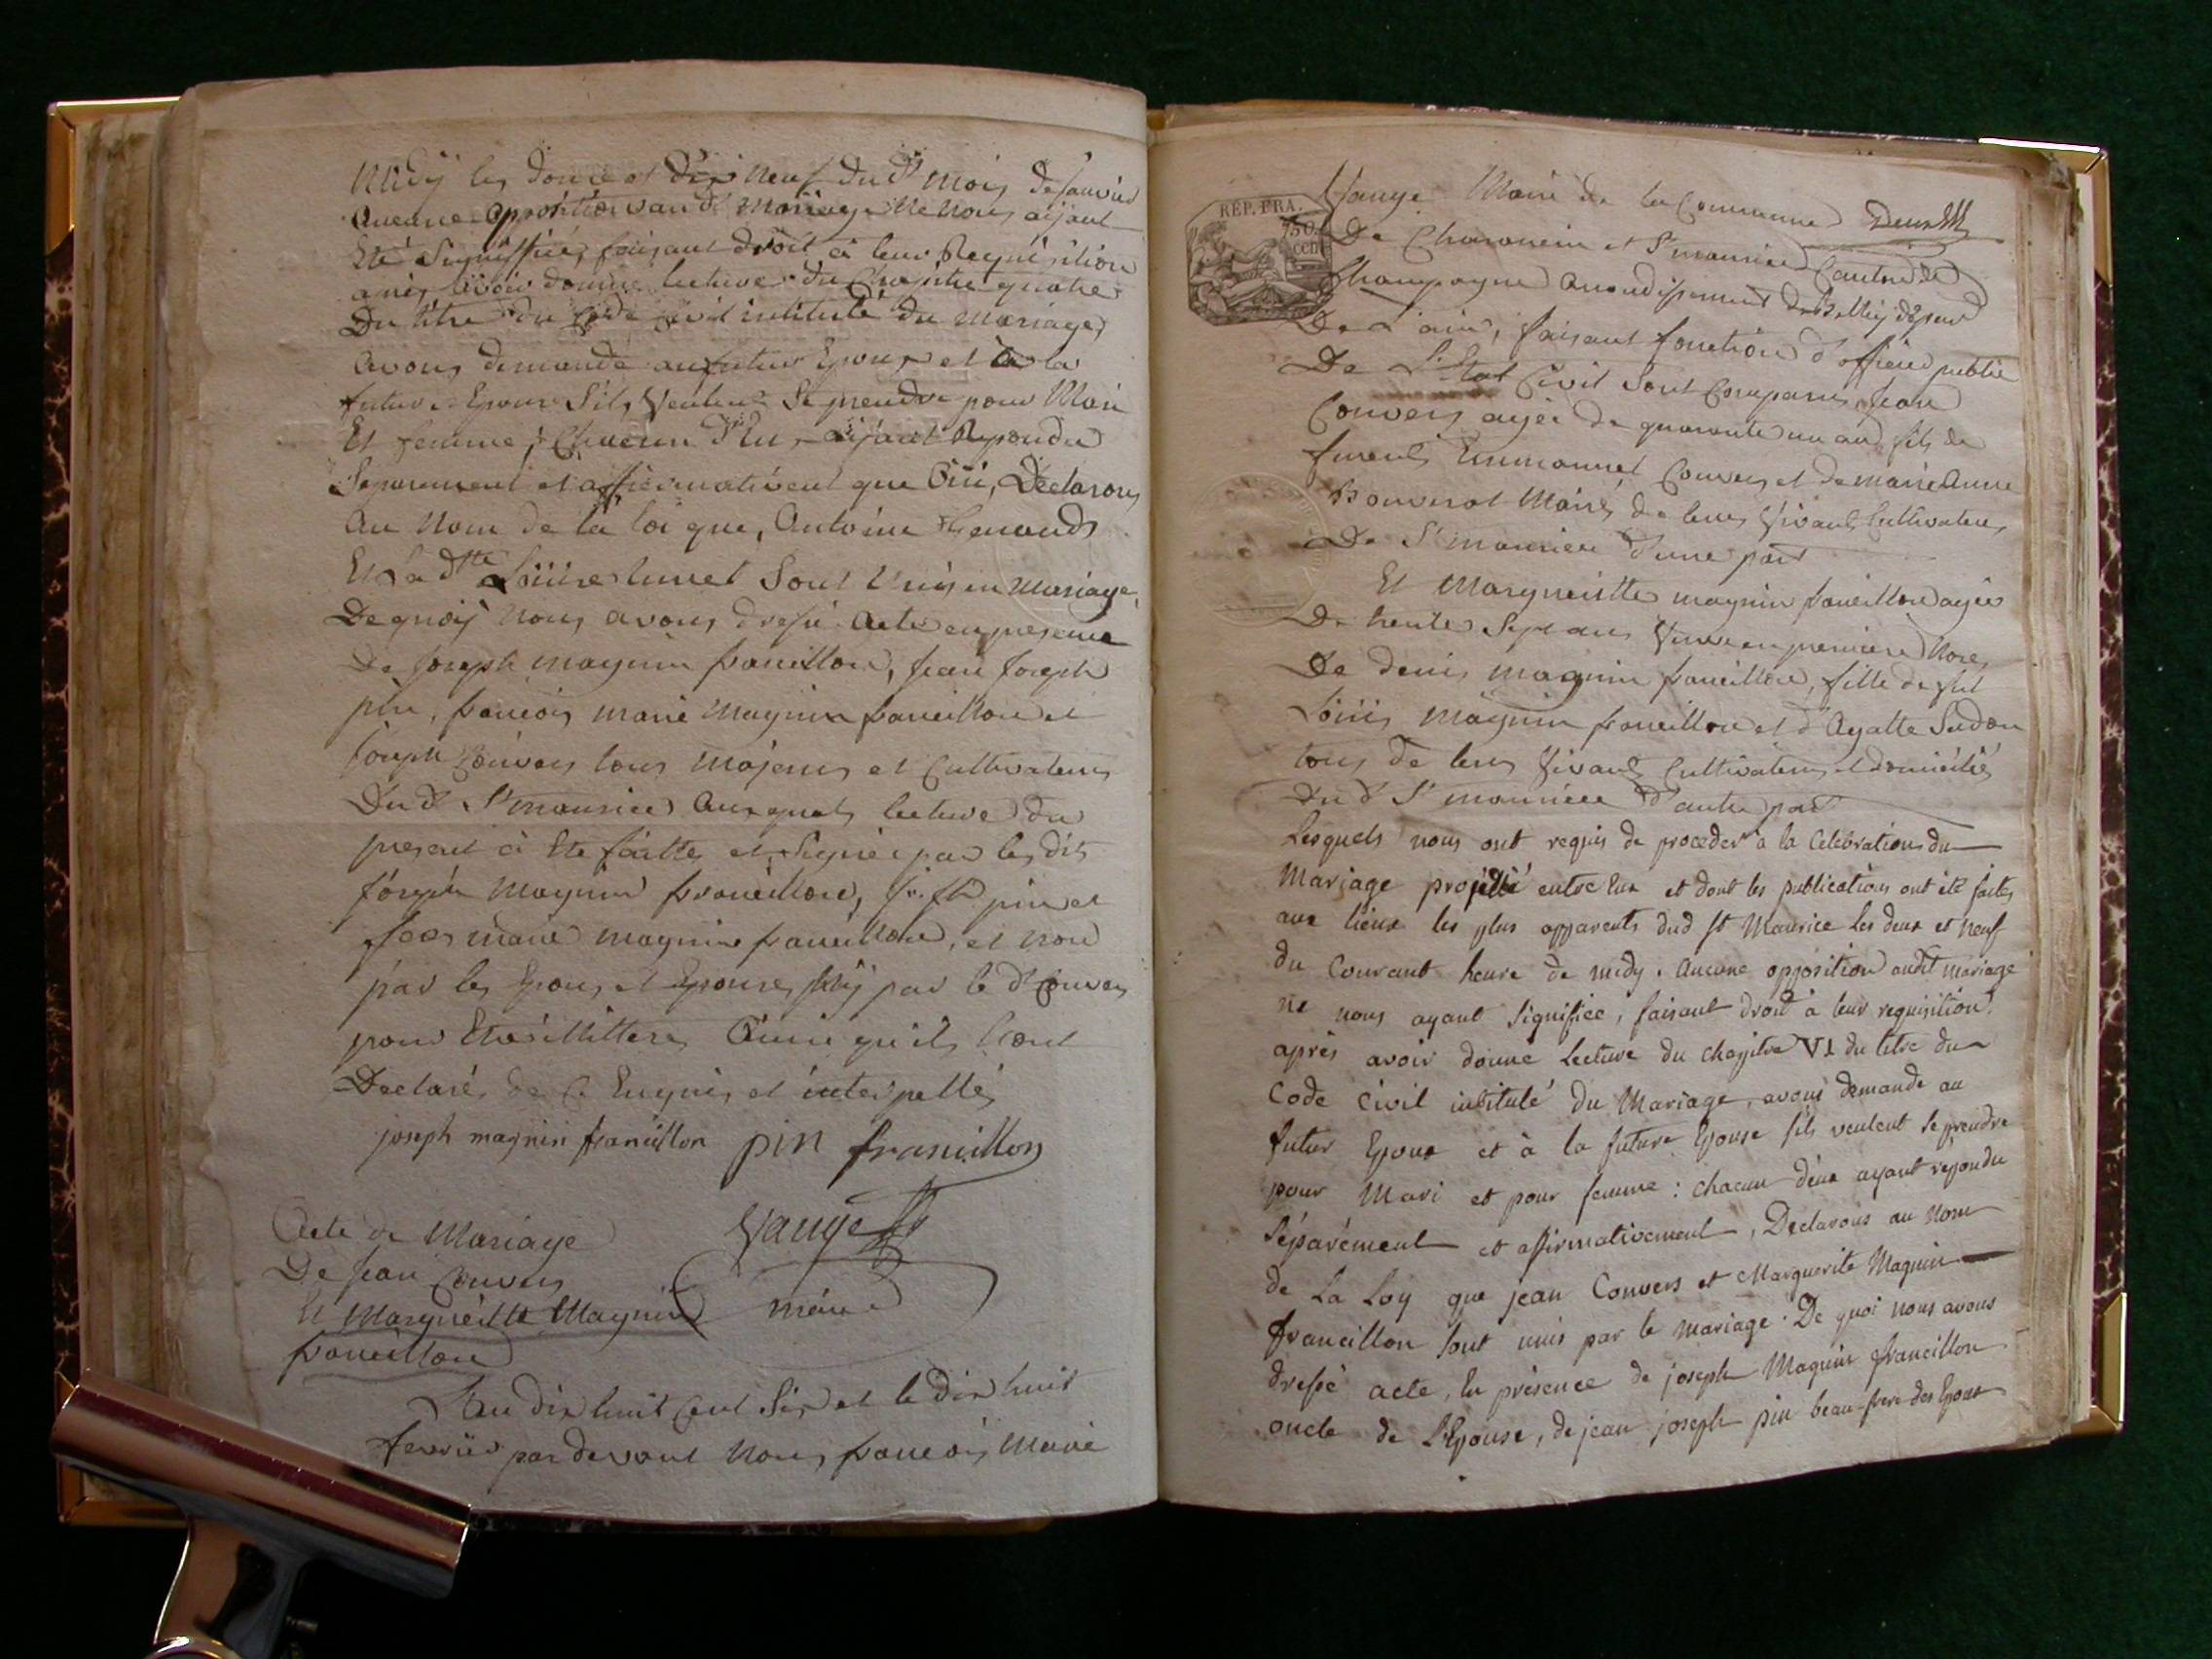 Midÿ les douze et dix neuf du dt mois de Janvier
Aucune opposition aud. mariage ne nous aÿant
Eté Signiffiée, faisant droit à leur Réquisition
après avoir donné lecture du Chapitre quatre
Du titre du Code Civil intitulé du mariage
avons demandé au futur Epoux et à la
future Epouse S'ils Veulent Se prendre pour Mari
Et femme, Chacun d'Eux aÿant Repondu
Separement et affirmativent que Oüi, Déclarons
Au Nom de la loi que, Antoine
Et La dtte Loüise Sont Unis en Mariage,
De quoÿ Nous avons dressé Acte en presence
De Joseph magnin francillon, Jean Joseph
pin, françois marie Magnin francillon et
Joseph Convers tous Majeurs et Cultivateurs
Du dt St maurice Auxquels lecture du
present à Eté faitte et Signée par les dits
Joseph Magnin francillon, jn. jh. pin et
fcois marie magnin francillon, et non
par les Epoux et Epouse, Niÿ par le dt Convers
pour Etre illittere Ainsi qu'ils l'ont
Declaré de Ce Enquis et interpellé
joseph magnin francillon pin francillon
Vauge
maire
Acte de Mariage
De Jean Convers
Et Marguëitte Magnin
francillon
L'an dix huit Cent Six et le dix huit
fevrier par devant Nous françois Marie
REP. FRA.
750.
cent
Vauge Maire de la Commune Deux
De Charancin et St maurice Canton de
Champagne Arrondissement de Belley Dépard
De L'ain, faisant fonction d'officier public
De L'Etat Civil Sont Comparus Jean
Convers agée de quarante un and fils de
furent Emmanuel Convers et de marie Anne
Bouvrot Mariés de leurs Vivants Cultivateurs
De St maurice d'une part
Et Margueitte magnin francillon agée
De trente Sept ans Veuve en premiere Noces
De denis magnin francillon, fille de fut
Loüis Magnin francillon et d'Agatte Sudon
tous de leurs Vivants Cultivateurs et domiciliés
Du dt St maurice d'autre part
Lesquels nous ont requis de proceder à la Celébration du
Mariage projetté entre Eux et dont les publications ont été faites
aux lieux les plus apparents dud St Maurice les deux et neuf
du Courant heure de midy. Aucune opposition audit mariage
ne nous ayant Signifiée, faisant droit à leur requisition,
après avoir donné lecture du chapitre VI du titre du
Code Civil intitulé du Mariage, avons demandé au
futur Epoux et à la future Epouse S'ils veulent Se prendre
pour Mari et pour femme : chacun d'eux ayant répondu
Séparément et affirmativement, Declarons au nom
de La Loy que jean Convers et Marguerite Magnin
francillon Sont unis par le mariage. De quoi nous avons
dressé acte, En présence de joseph Magnin francillon
oncle de L'Epouse, de jean joseph pin beau frere des Epoux